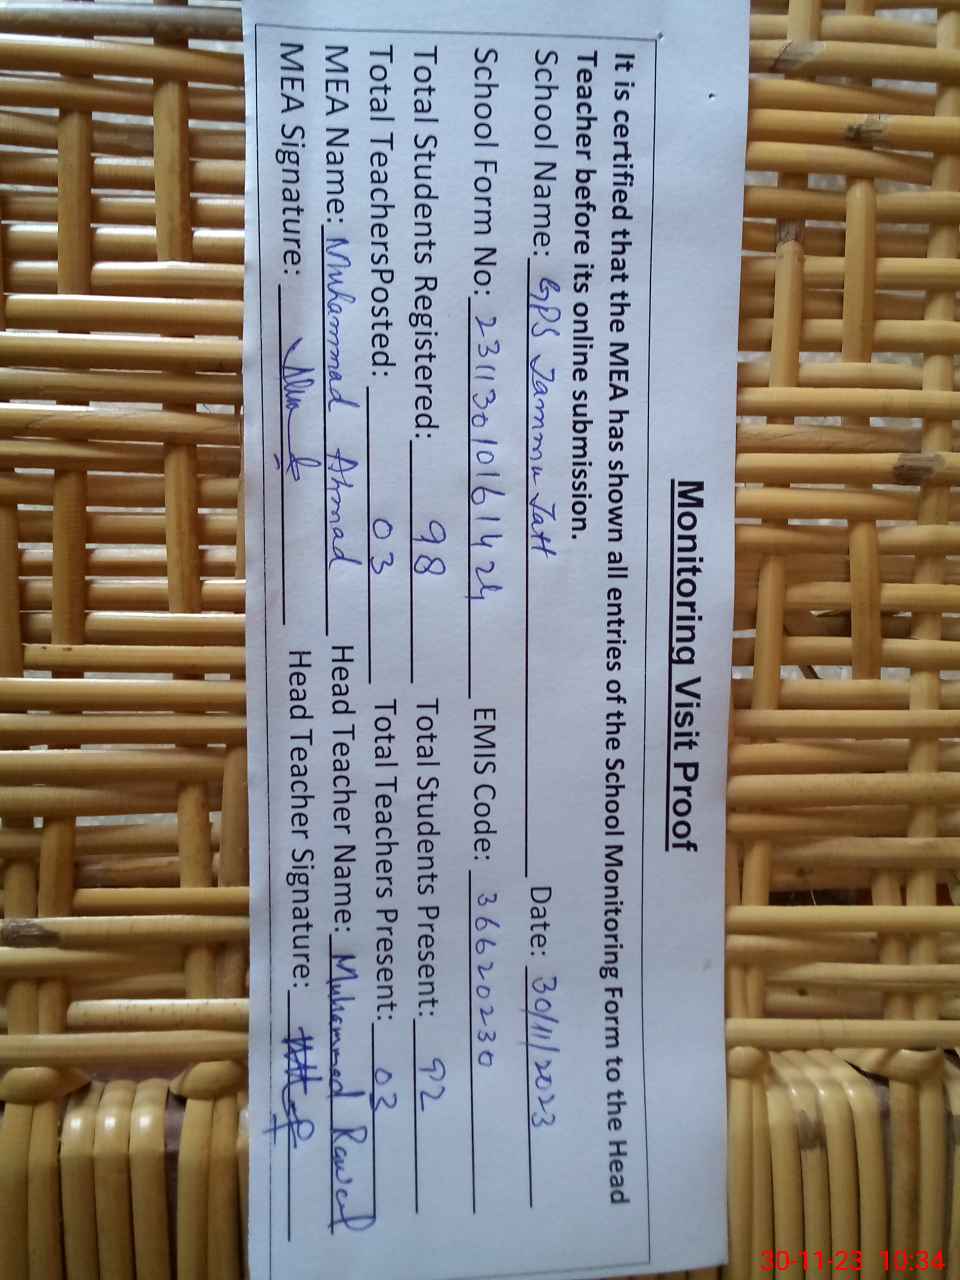 Monitoring Visit Proof
It is certified that the MEA has shown all entries of the School Monitoring Form to the Head
Teacher before its online submission.
School Name: GPS Jammu Jatt Date: 30/11/2023
School Form No: 23113010161424 EMIS Code: 36620230
Total Students Registered: 98 Total Students Present: 92
Total TeachersPosted: 03 Total Teachers Present: 03
MEA Name: Muhammad Ahmad Head Teacher Name: Muhammad
MEA Signature: Head Teacher Signature:
30-11-23 10:34